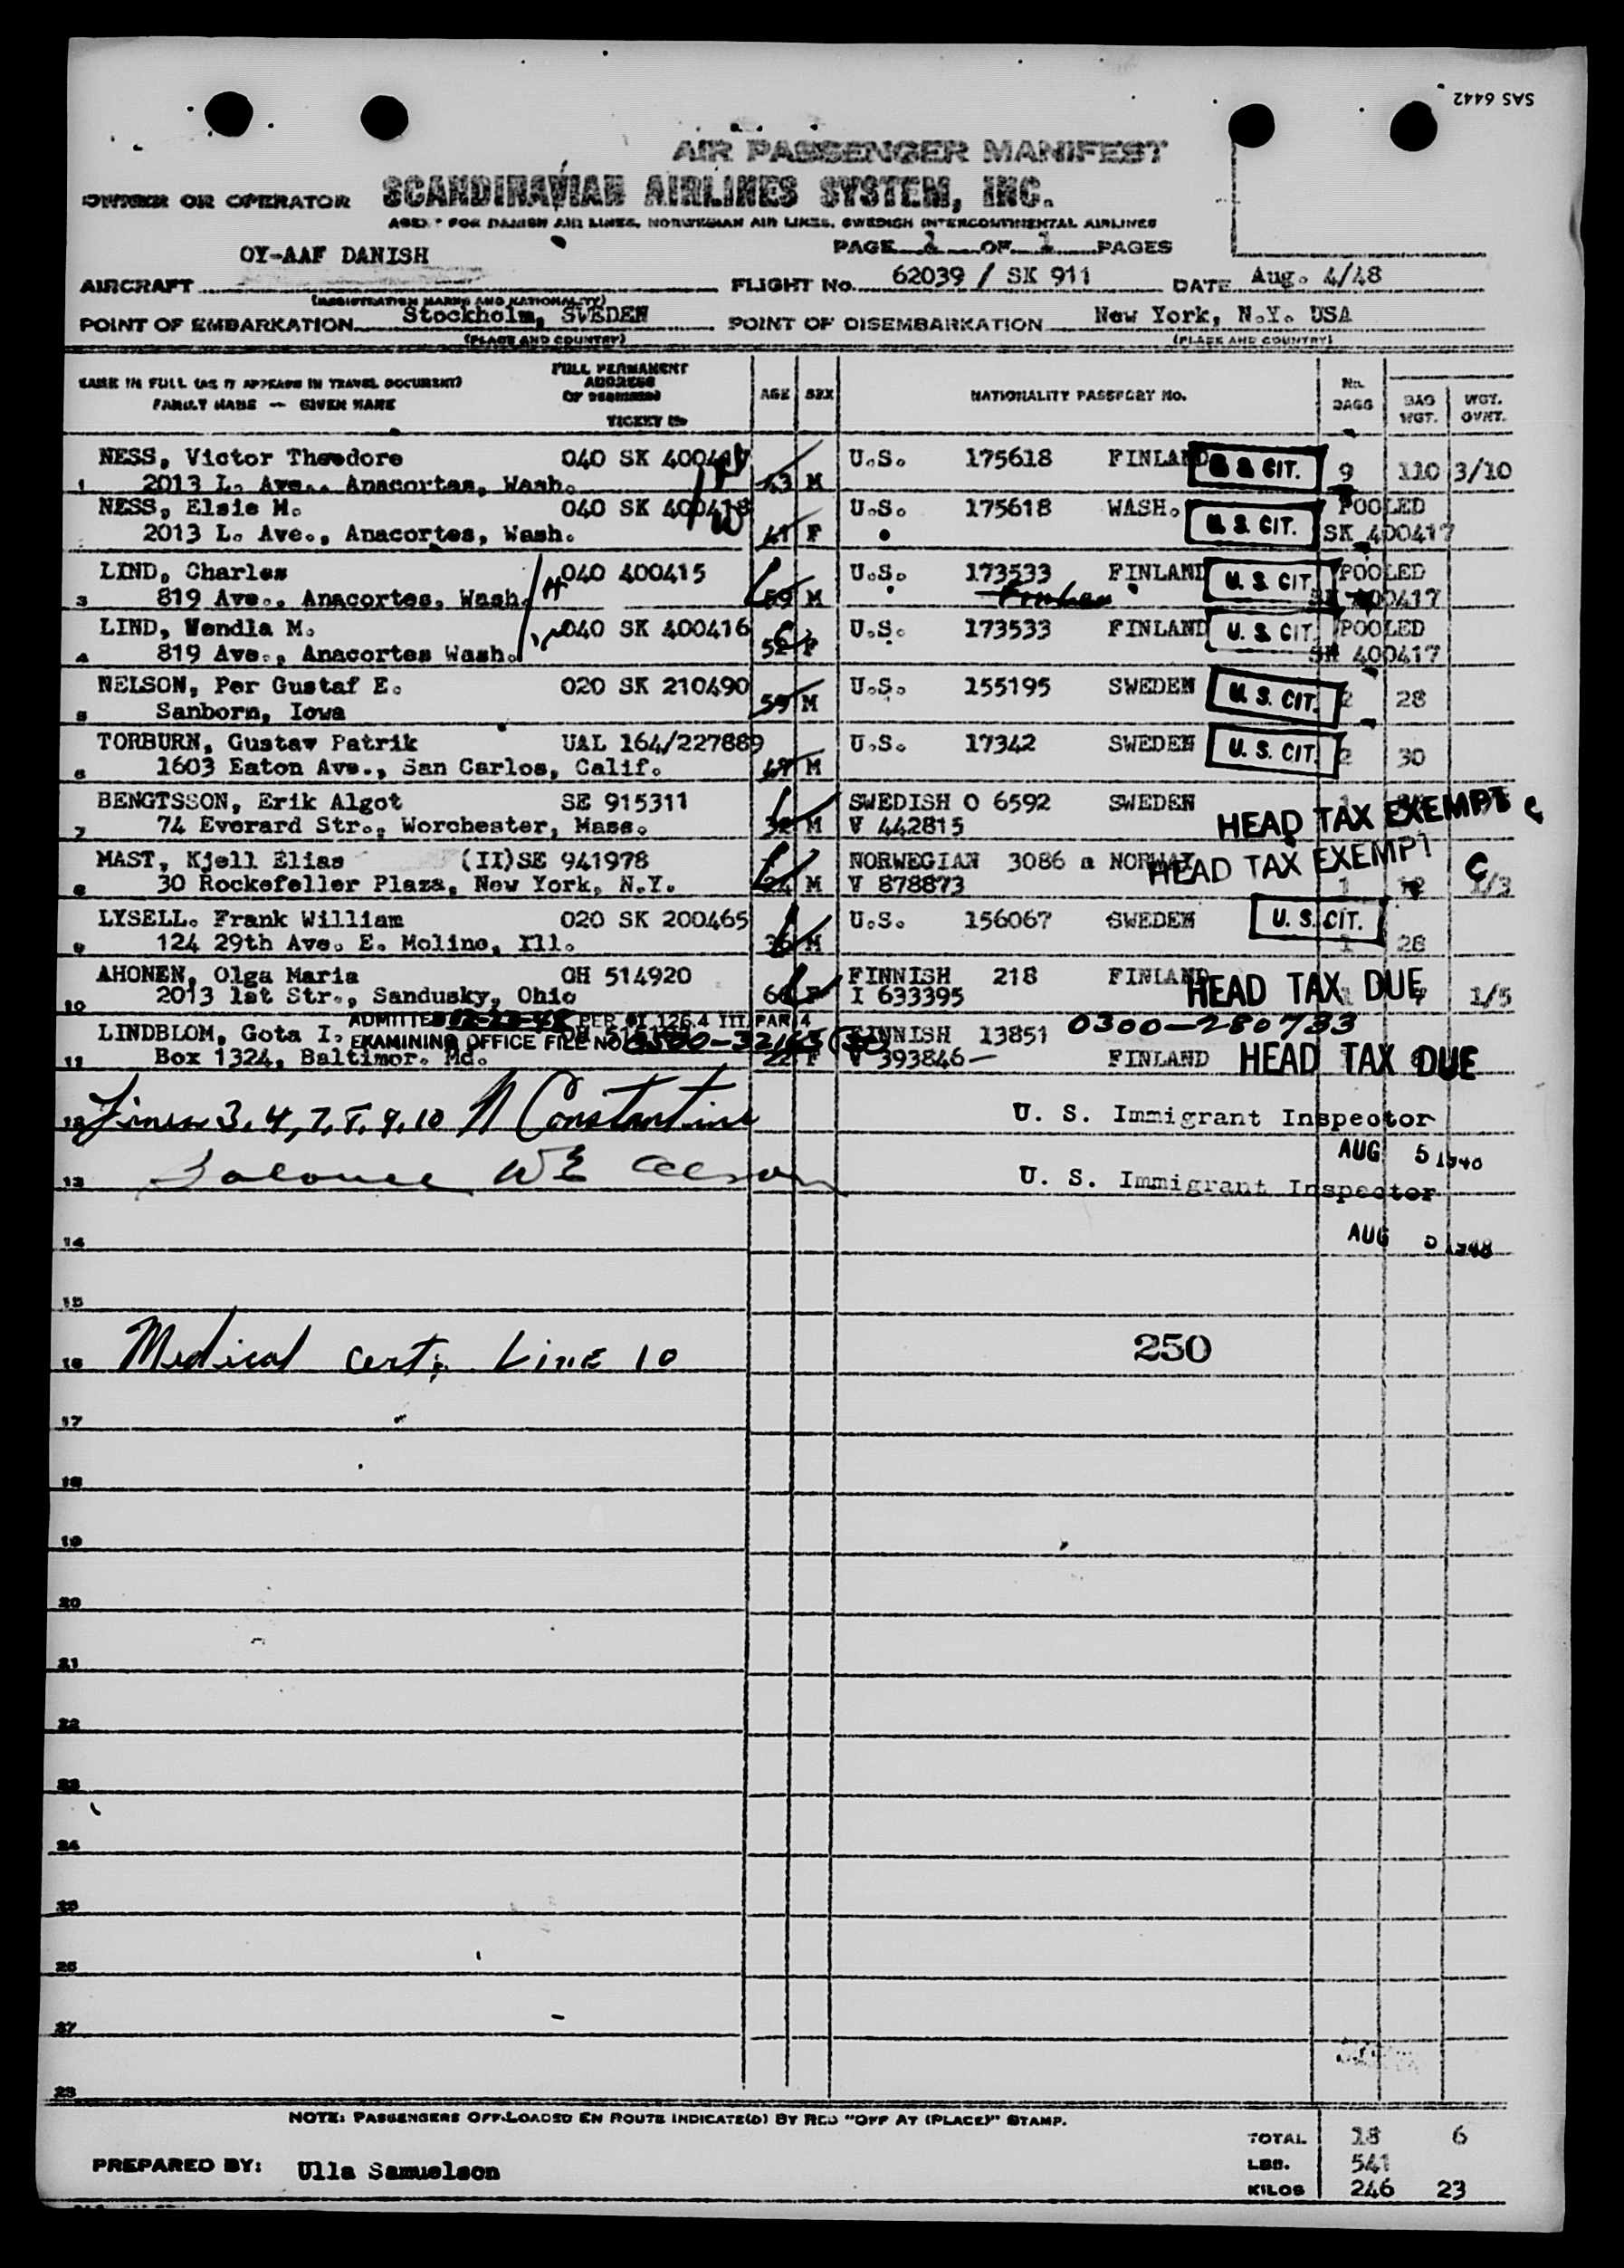 SAS 6442
AIR PASSENGER MANIFEST
OWNER OR OPERATOR SCANDINAVIAN AIRLINES SYSTEM, INC.
AGENT FOR DANISH AIR LINES, NORWEGIAN AIR LINES, SWEDISH INTERCONTINENTAL AIRLINES
PAGE 1 OF 1 PAGES
OY-AAF DANISH
AIRCRAFT FLIGHT No. 62039 / SK 911 DATE Aug. 4/48
(REGISTRATION MARKS AND NATIONALITY)
POINT OF EMBARKATION Stockholm, SWEDEN POINT OF DISEMBARKATION New York, N.Y. USA
(PLACE AND COUNTRY) (PLACE AND COUNTRY)
NAME IN FULL (AS IT APPEARS IN TRAVEL DOCUMENT) FULL PERMANENT ADDRESS AGE SEX NATIONALITY PASSPORT No. No. BAGS BAG WGT. WGT. OVWT.
FAMILY NAME — GIVEN NAME TICKET No
NESS, Victor Theodore 040 SK 400417 U.S. 175618 FINLAND U. S. CIT. 9 110 3/10
1 2013 L. Ave., Anacortes, Wash. M
NESS, Elsie M. 040 SK 400418 U.S. 175618 WASH. U. S. CIT. POOLED
2013 L. Ave., Anacortes, Wash. 41 F SK 400417
LIND, Charles 040 400415 U.S. 173533 FINLAND U. S. CIT. POOLED
3 819 Ave., Anacortes, Wash. 59 M SK 400417
LIND, Wendla M. 040 SK 400416 U.S. 173533 FINLAND U. S. CIT. POOLED
4 819 Ave., Anacortes Wash. F SK 400417
NELSON, Per Gustaf E. 020 SK 210490 U.S. 155195 SWEDEN U. S. CIT. 2 28
5 Sanborn, Iowa 59 M
TORBURN, Gustav Patrik UAL 164/227889 U.S. 17342 SWEDEN U. S. CIT. 2 30
6 1603 Eaton Ave., San Carlos, Calif. 69 M
BENGTSSON, Erik Algot SE 915311 SWEDISH O 6592 SWEDEN
7 74 Everard Str., Worchester, Mass. M V 442815 HEAD TAX EXEMPT C
MAST, Kjell Elias (II)SE 941978 NORWEGIAN 3086 a NORWAY HEAD TAX EXEMPT C
8 30 Rockefeller Plaza, New York, N.Y. 24 M V 878873 1 1/3
LYSELL. Frank William 020 SK 200465 U.S. 156067 SWEDEN U. S. CIT.
9 124 29th Ave. E. Moline, Ill. 36 M 1 28
AHONEN, Olga Maria OH 514920 FINNISH 218 FINLAND HEAD TAX DUE
10 2013 1st Str., Sandusky, Ohio F I 633395 1/5
ADMITTED 12-23-48 PER OI 126.4 III PAR 4
LINDBLOM, Gota I. FINNISH 13851 0300-280733
EXAMINING OFFICE FILE NO.
11 Box 1324, Baltimor. Md. 22 F V 393846 FINLAND HEAD TAX DUE
12 Lines 3, 4, 7, 8, 9, 10 N Constantine U. S. Immigrant Inspector
AUG 5 1948
13 Balance W E U. S. Immigrant Inspector
14 AUG 5 1948
15
16 Medical cert; Line 10 250
17
18
19
20
21
22
23
24
25
26
27
28
NOTE: PASSENGERS OFF-LOADED EN ROUTE INDICATE(D) BY RED "OFF AT (PLACE)" STAMP.
TOTAL 18 6
LBS. 541
PREPARED BY: Ulla Samuelson
KILOS 246 23